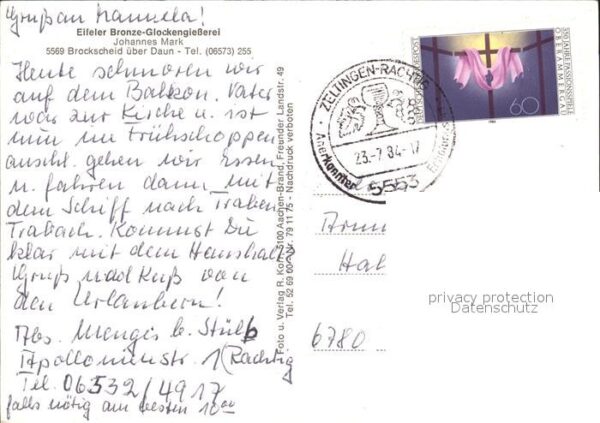 Gruß an Manuela!
Eifeler Bronze-Glockengießerei
Johannes Mark
5569 Brockscheid über Daun - Tel. (06573) 255
Heute schmoren wir
auf dem Balkon. Vater
war zur Kirche u. ist
nun im Frühschoppen
anschl. gehen wir Essen
u. fahren dann mit
dem Schiff nach Traben
Trabach. Kommst Du
klar mit dem Haushalt?
Gruß und Kuß von
den Urlaubern!
Abs. Menges b. Stülb
Apollominstr. 1 (Rachtig
Tel. 06532/4917
falls nötig am besten 18°°
Foto u. Verlag R. Korr, 5100 Aachen-Brand, Freunder Landstr. 49
Tel. 52 69 00 - Nachdruck verboten
ZELTINGEN-RACHTIG
23.-7.84.-17
Anerkannter
5553
350 JAHRE PASSIONSSPIELE
OBERAMMERGAU
DEUTSCHE BUNDESPOST
60
Hal
6780
privacy protection
Datenschutz